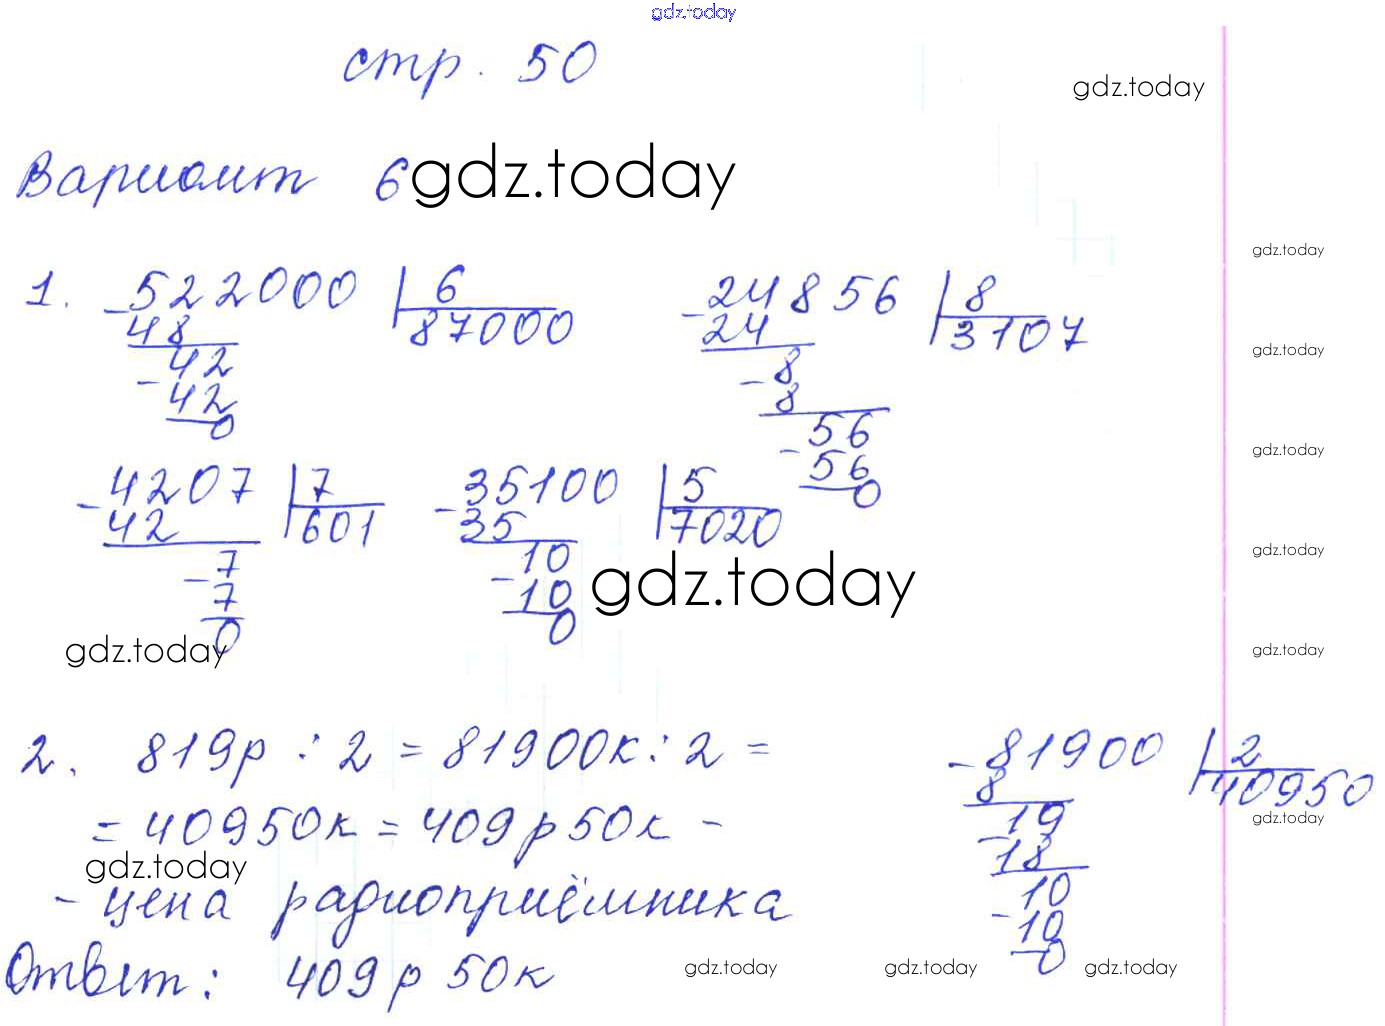 gdz.today
стр. 50
gdz.today
Вариант 6 gdz.today
gdz.today
1. -522000 | 6 -24856 | 8
48 87000 24 3107
gdz.today
-42 -8
42 8
0 -56
gdz.today
56
0
-4207 | 7 -35100 | 5
42 601 35 7020
gdz.today
-7 -10
7 10 gdz.today
0 0
gdz.today gdz.today
2. 819р : 2 = 81900к : 2 = -81900 | 2
8 40950
= 40950к = 409р 50к - 19 gdz.today
-18
gdz.today
- цена радиоприёмника 10
-10
Ответ: 409р 50к 0
gdz.today gdz.today gdz.today